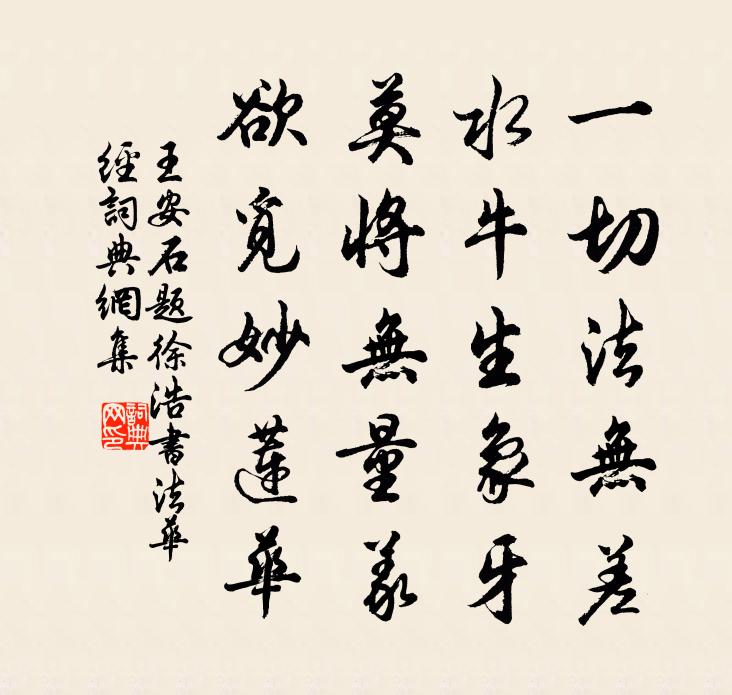 一切法無差
水牛生象牙
莫將無量義
欲覓妙蓮華
王安石題徐浩書法華
經詞典網集
詞典
网印